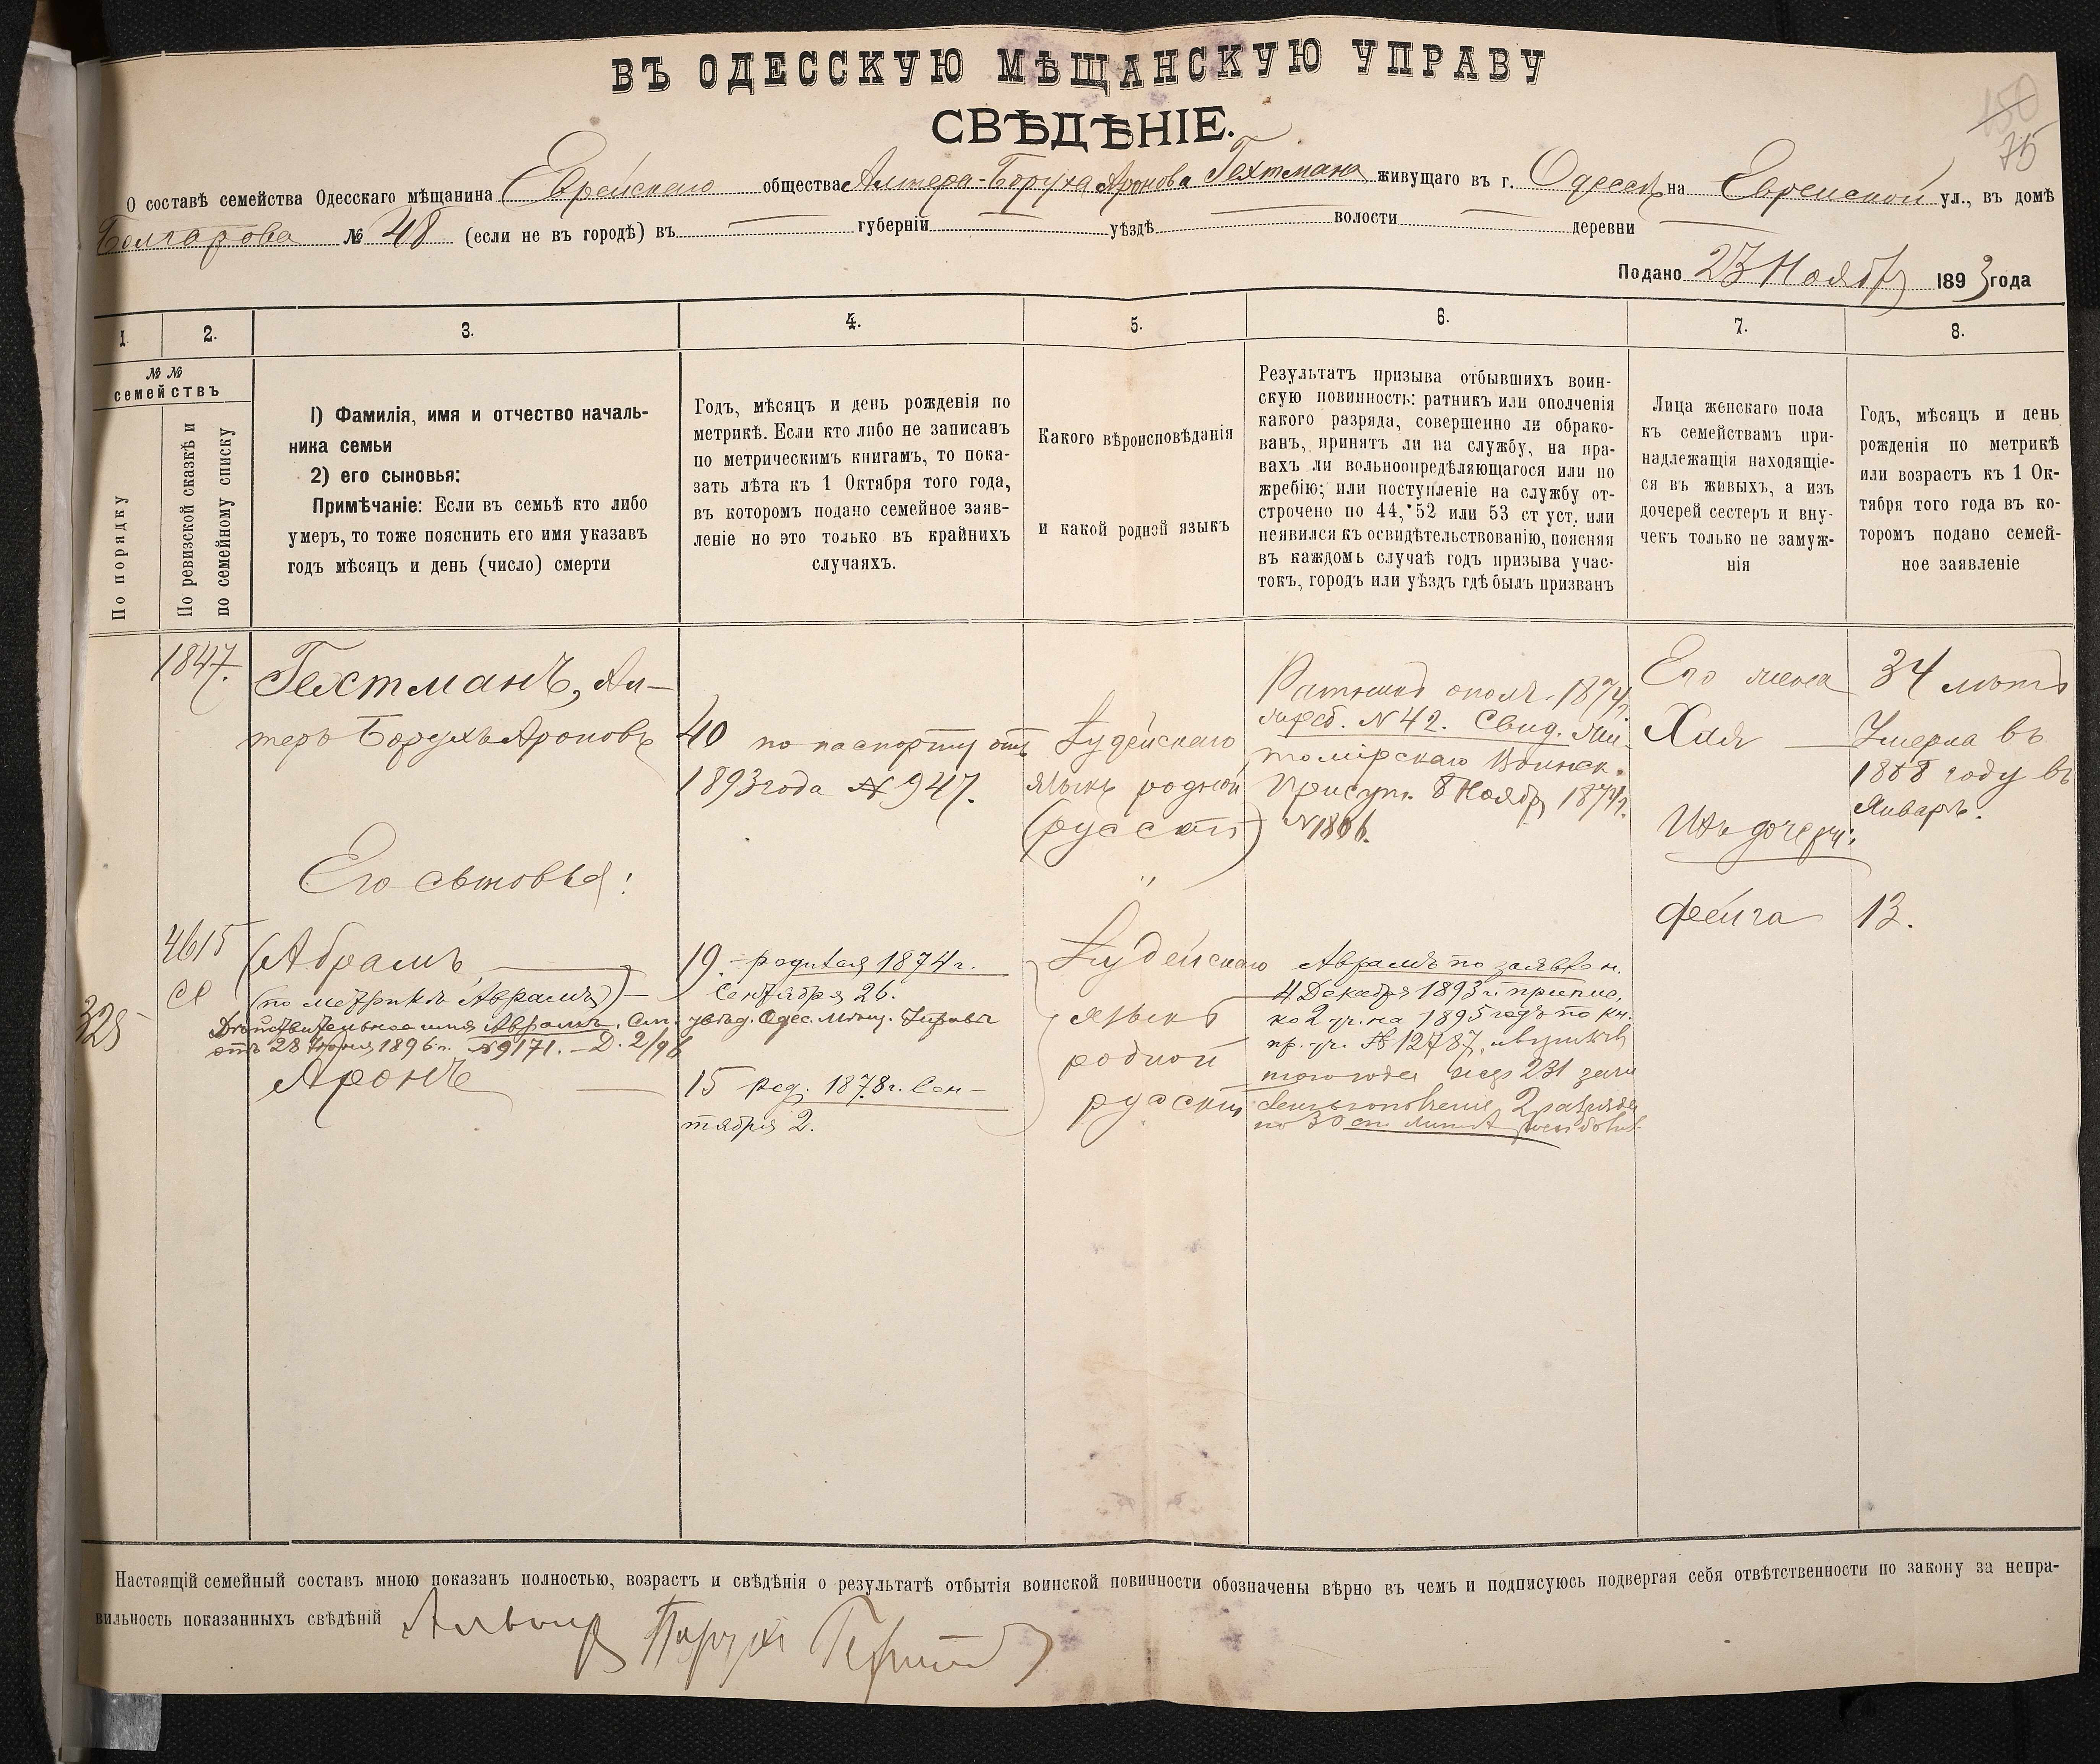 ВЪ ОДЕССКУЮ МѢЩАНСКУЮ УПРАВУ
СВѢДѢНІЕ.
150
75
О составѣ семейства Одесскаго мѣщанина Еврейскаго общества Алтера-Боруха Аронова Гехтмана живущаго въ г. Одессѣ на Еврейской ул., въ домѣ
Болгарова № 48 (если не въ городѣ) въ губерніи уѣздѣ волости деревни
Подано 23 Ноября 1893 года
1. 2. 3. 4. 5. 6. 7. 8.
№ №
семействъ
По порядку
По ревизской сказкѣ и
по семейному списку
1) Фамилія, имя и отчество началь-
ника семьи
2) его сыновья:
Примѣчаніе: Если въ семьѣ кто либо
умеръ, то тоже пояснить его имя указавъ
годъ мѣсяцъ и день (число) смерти
Годъ, мѣсяцъ и день рожденія по
метрикѣ. Если кто либо не записанъ
по метрическимъ книгамъ, то пока-
зать лѣта къ 1 Октября того года,
въ которомъ подано семейное заяв-
леніе но это только въ крайнихъ
случаяхъ.
Какого вѣроисповѣданія
и какой родной языкъ
Результатъ призыва отбывшихъ воин-
скую повинность: ратникъ или ополченія
какого разряда, совершенно ли обрако-
ванъ, принятъ ли на службу, на пра-
вахъ ли вольноопредѣляющагося или по
жребію; или поступленіе на службу от-
строчено по 44, 52 или 53 ст уст. или
неявился къ освидѣтельствованію, поясняя
въ каждомъ случаѣ годъ призыва учас-
токъ, городъ или уѣздъ гдѣ былъ призванъ
Лица женскаго пола
къ семействамъ при-
надлежащія находящіе-
ся въ живыхъ, а изъ
дочерей сестеръ и вну-
чекъ только не замуж-
нія
Годъ, мѣсяцъ и день
рожденія по метрикѣ
или возрастъ къ 1 Ок-
тября того года въ ко-
торомъ подано семей-
ное заявленіе
1847.
Гехтманъ, Ал-
теръ Борухъ Ароновъ
40 по паспорту отъ
1893 года № 947.
Іудейскаго
языкъ родной
(русскій)
Ратникъ ополч. 1874 г.
жреб. № 42. Свид. Жи-
томірскаго Воинск.
Присут. 8 Ноября 1874 г.
№ 1866.
Его жена
Хая
34 лѣтъ
Умерла въ
1888 году въ
Январѣ.
Ихъ дочери:
Фейга 13.
Его сыновья:
4615
329
Абрамъ
(по метрикѣ Аврамъ)
Дѣйствительное имя Аврамъ. См. увѣд. Одес. Мѣщ. Управы
отъ 28 Іюня 1896 г. № 9171. — Д. 2/96
19. — родился 1874 г.
Сентября 26.
Аронъ
15 род. 1878 г. Сен-
тября 2.
Іудейскаго
языкъ
родной
русскій
Аврамъ по заявлен.
4 Декабря 1893 г. приписанъ
ко 2 уч. на 1895 годъ по кн.
пр. уч. № 12787,
того года 231
2 разряда
по 30 ст.
Настоящій семейный составъ мною показанъ полностью, возрастъ и свѣдѣнія о результатѣ отбытія воинской повинности обозначены вѣрно въ чемъ и подписуюсь подвергая себя отвѣтственности по закону за непра-
вильность показанныхъ свѣдѣній